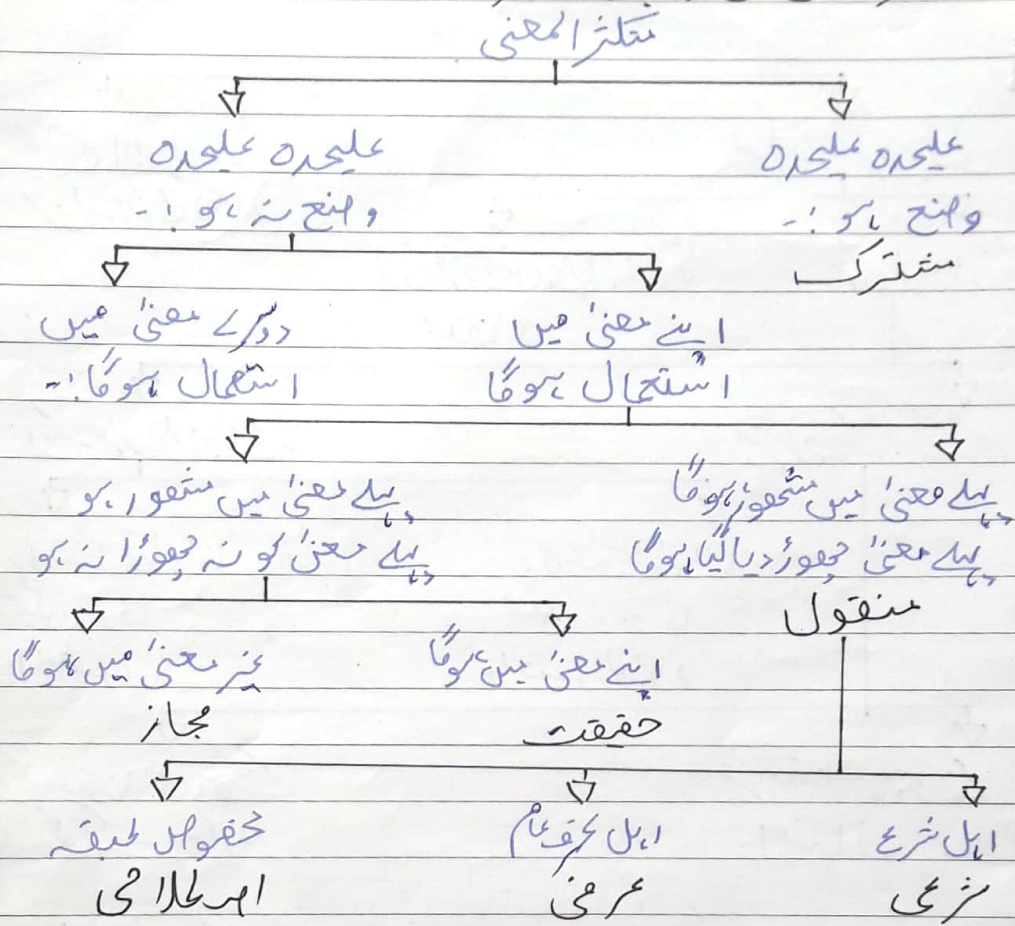 متکثر المعنی
علیحدہ علیحدہ
وضع ہو :-
مشترک
علیحدہ علیحدہ
وضع نہ ہو :-
اپنے معنیٰ میں
استعمال ہوگا
دوسرے معنیٰ میں
استعمال ہوگا :-
پہلے معنیٰ میں مشھور ہوگا
پہلے معنیٰ چھوڑ دیا گیا ہوگا
منقول
پہلے معنیٰ میں مشھور ہو
پہلے معنیٰ کو نہ چھوڑا نہ ہو
اپنے معنیٰ میں ہوگا
حقیقت
غیر معنیٰ میں ہوگا
مجاز
اہل شرع
شرعی
اہل عرف عام
عرفی
مخصوص طبقہ
اصطلاحی